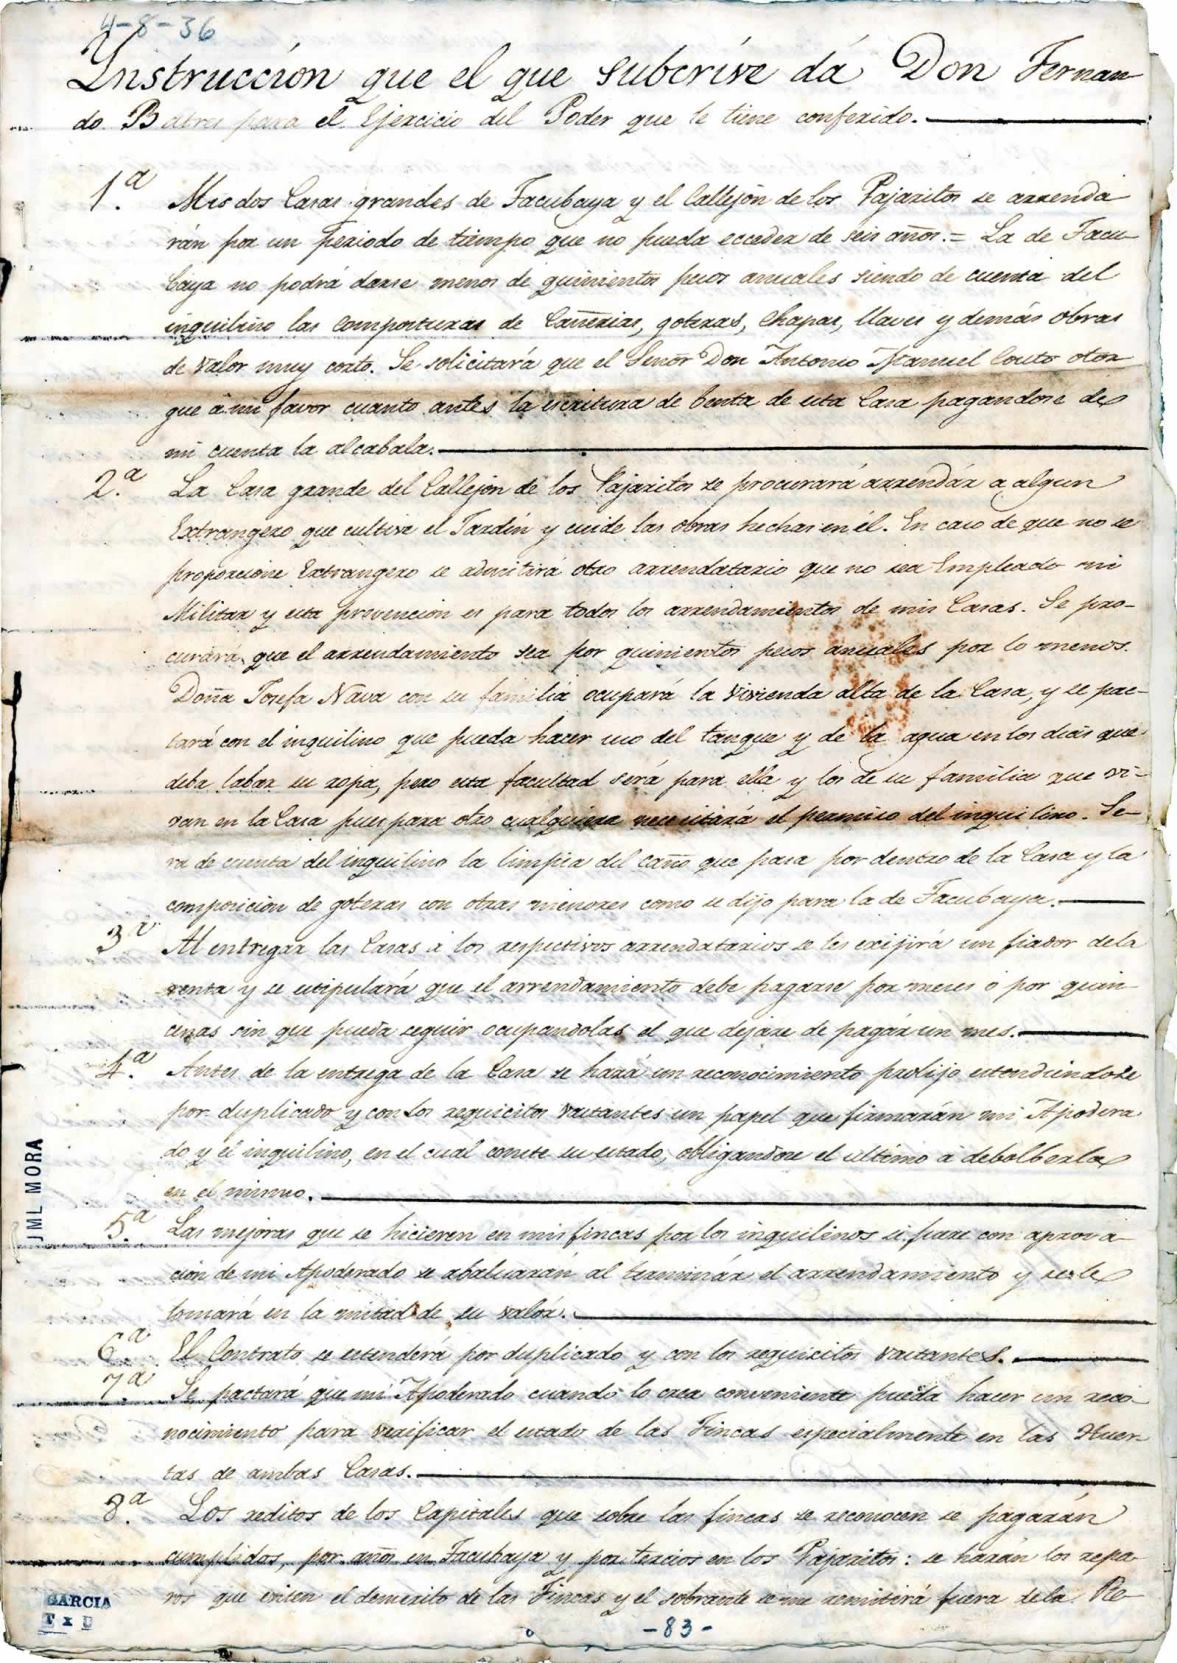 4-8-36
Ynstrucción que el que subcrive dá Don Fernan
do Batres para el Ejercicio del Poder que le tiene conferido.
1.ª Mis dos Casas grandes de Tacubaya y el Callejón de los Pajaritos se arrenda
rán por un periodo de tiempo que no pueda ecceder de seis años. = La de Tacu-
baya no podrá darse menos de quinientos pesos anuales siendo de cuenta del
inquilino las composturas de Cañerias, goteras, chapas, llaves y demás obras
de valor muy corto. Se solicitará que el Señor Don Antonio Manuel Couto otor
gue á mi favor cuanto antes la escritura de benta de esta Casa pagandose de
mi cuenta la alcabala.
2.ª La Casa grande del Callejón de los Pajaritos se procurará arrendár a algun
Extrangero que cultive el Jardín y cuide las obras hechas en él. En caso de que no se
proporcione Extrangero se admitirá otro arrendatario que no sea Empleado ni
Militar y esta prevencion es para todos los arrendamientos de mis Casas. Se pro-
curará que el arrendamiento sea por quinientos pesos anuales por lo menos.
Doña Josefa Nava con su familia ocupará la vivienda alta de la Casa, y se pac-
tará con el inquilino que pueda hacer uso del tanque y de la agua en los dias que
deba labar su ropa, pero esta facultad será para ella y los de su familia que vi-
van en la Casa pues para otro cualquiera necesitará el permiso del inquilino. Se-
ra de cuenta del inquilino la limpia del caño que pasa por dentro de la Casa y la
composicion de goteras con otras menores como se dijo para la de Tacubaya.
3.ª Al entregar las Casas á los respectivos arrendatarios se les exijirá un fiador de la
renta y se estipulará que el arrendamiento debe pagarse por meses ó por quin-
cenas sin que pueda seguir ocupandolas el que dejare de pagár un mes.
4.ª Antes de la entrega de la Casa se hará un reconocimiento prolijo estendiendose
por duplicado y con los requicitos vastantes un papel que firmarán mi Apodera
do y el inquilino, en el cual conste su estado, obligandose el ultimo á debolberla
en el mismo.
5.ª Las mejoras que se hicieren en mis fincas por los inquilinos si fuere con aprova-
ción de mi Apoderado se abaluarán al terminár el arrendamiento y se le
tomará en la mitad de su valór.
6.ª El Contrato se estenderá por duplicado y con los requicitos vastantes.
7.ª Se pactará que mi Apoderado cuando lo crea conveniente pueda hacer un reco-
nocimiento para verificar el estado de las Fincas especialmente en las Huer-
tas de ambas Casas.
8.ª Los reditos de los Capitales que sobre las fincas se reconocen se pagarán
cumplidos, por años en Tacubaya y por tercios en los Pajaritos: se harán los repa-
ros que eviten el demerito de las Fincas y el sobrante se me remitirá fuera de la Re-
-83-
JML MORA
GARCIA